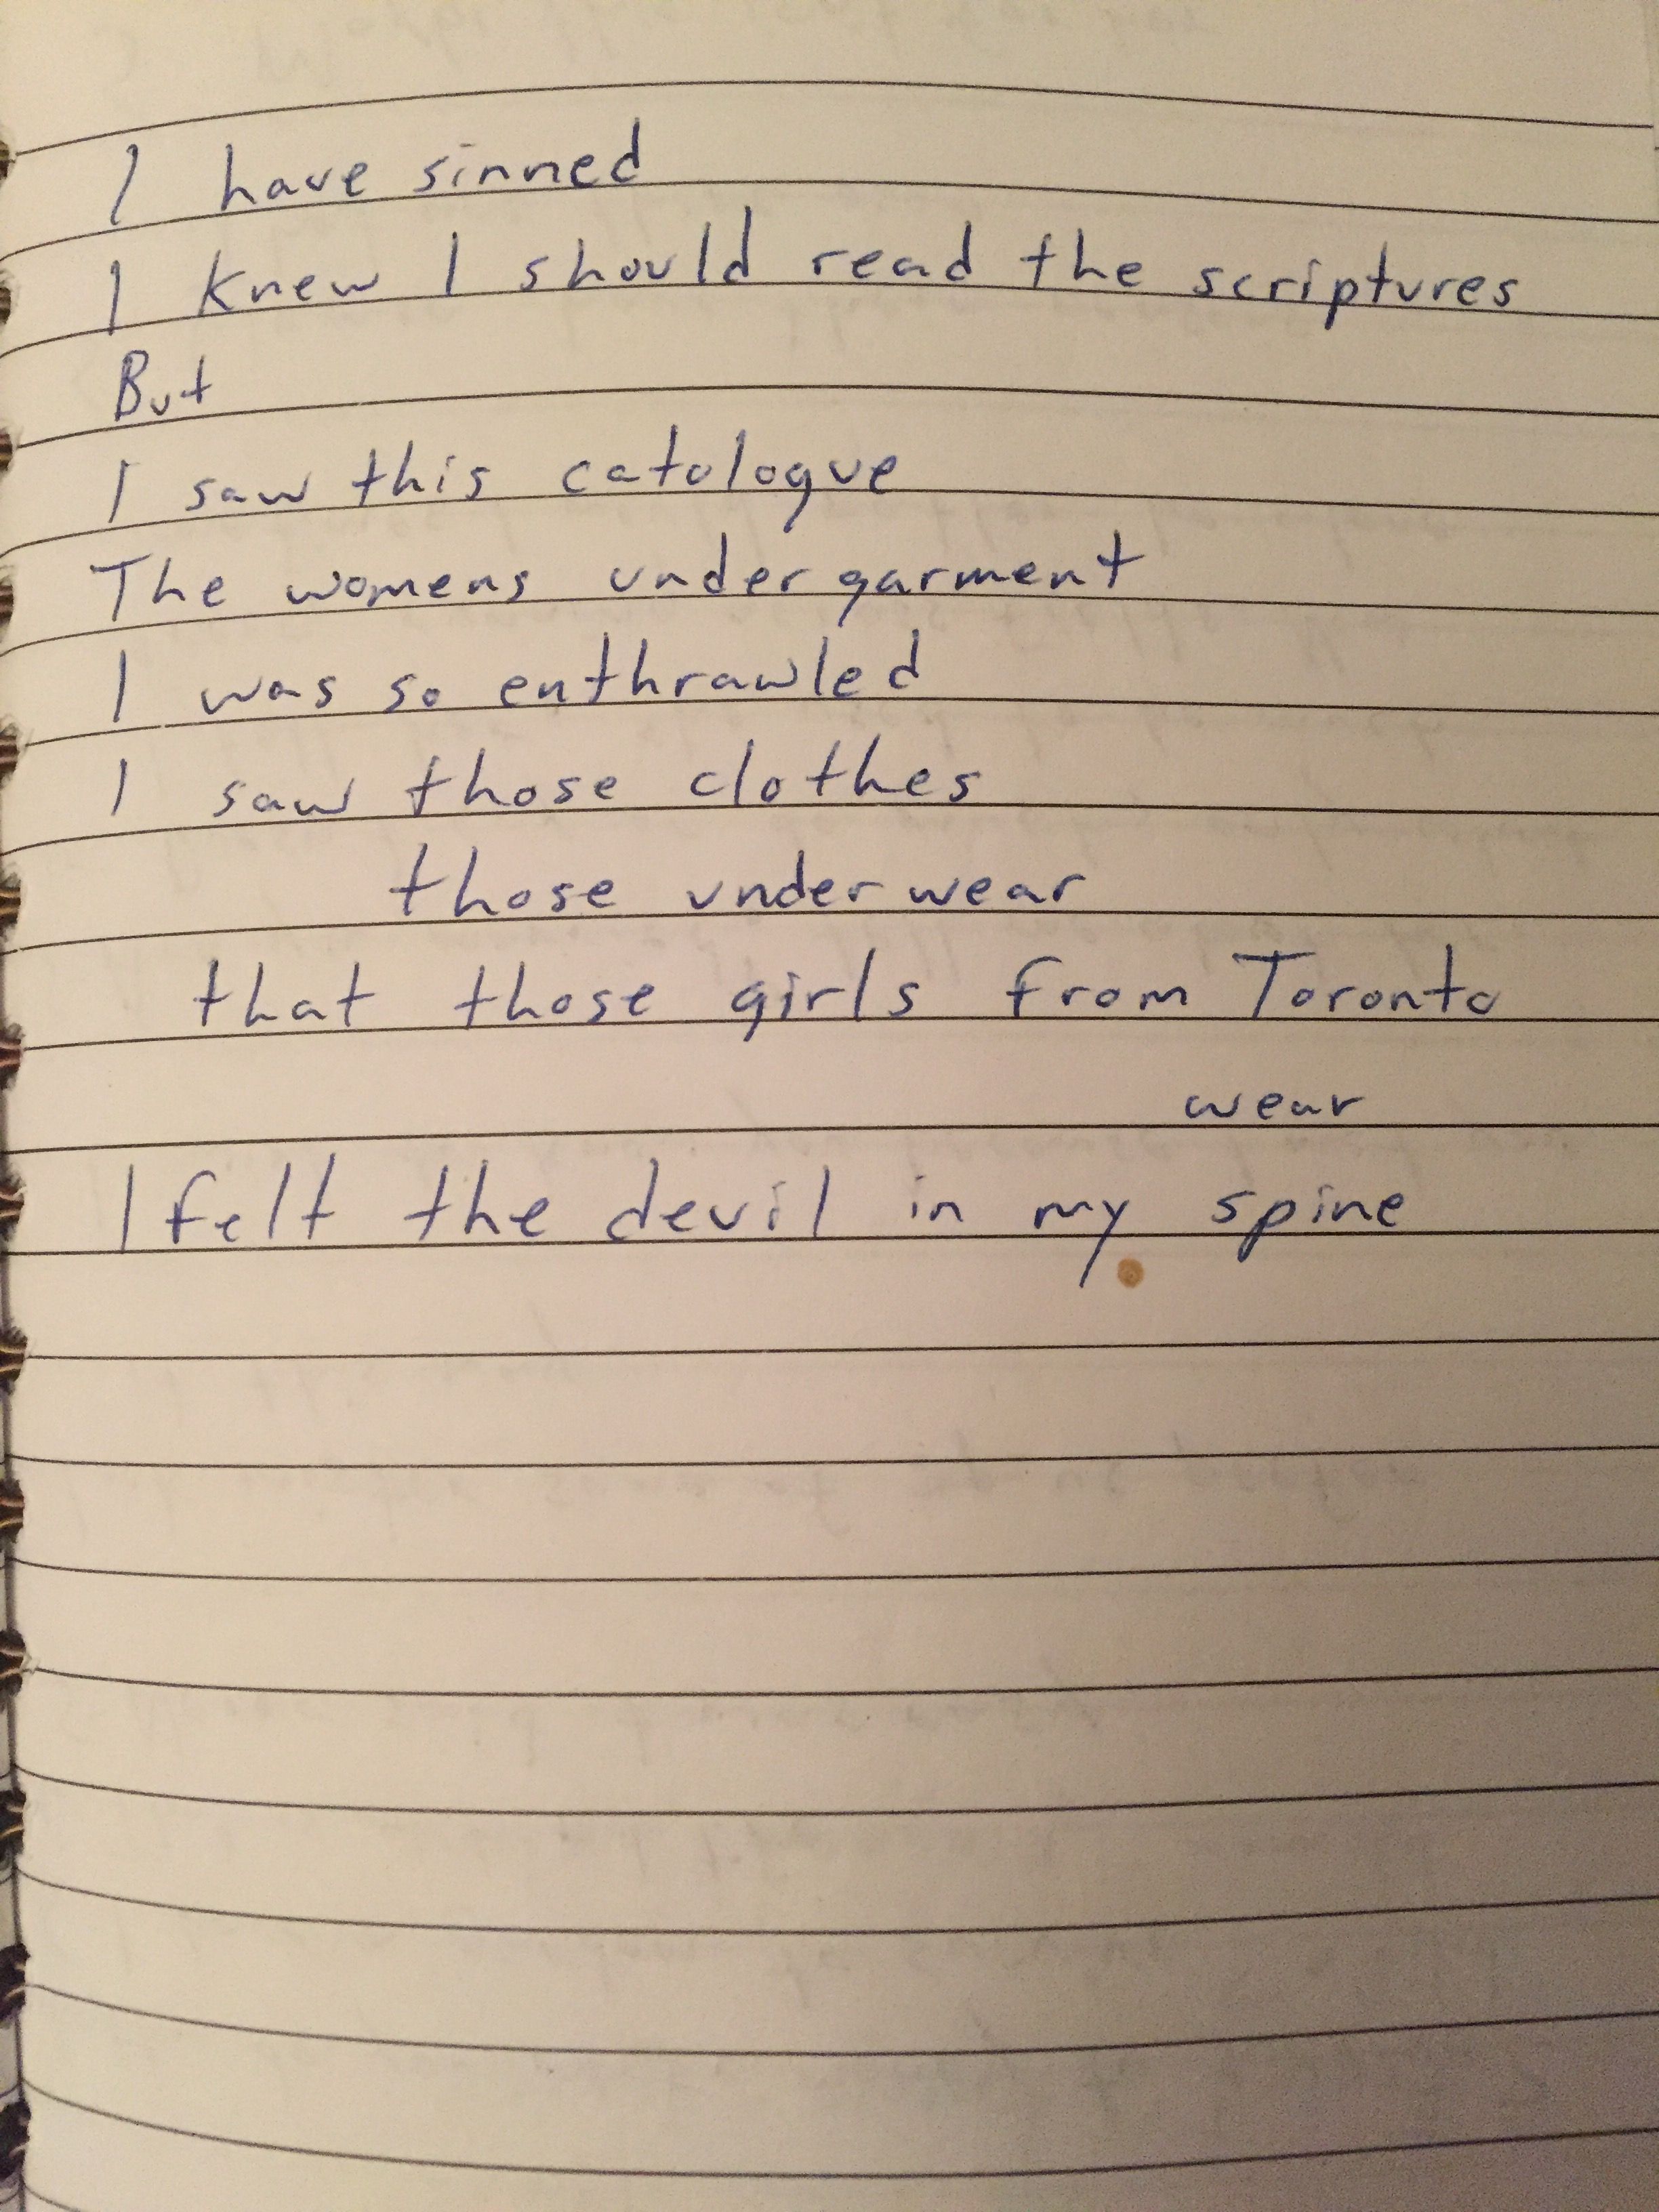 I have sinned
I knew I should read the scriptures
But
I saw this catologue
The womens undergarment
I was so enthrawled
I saw those clothes
those underwear
that those girls from Toronto
wear
I felt the devil in my spine